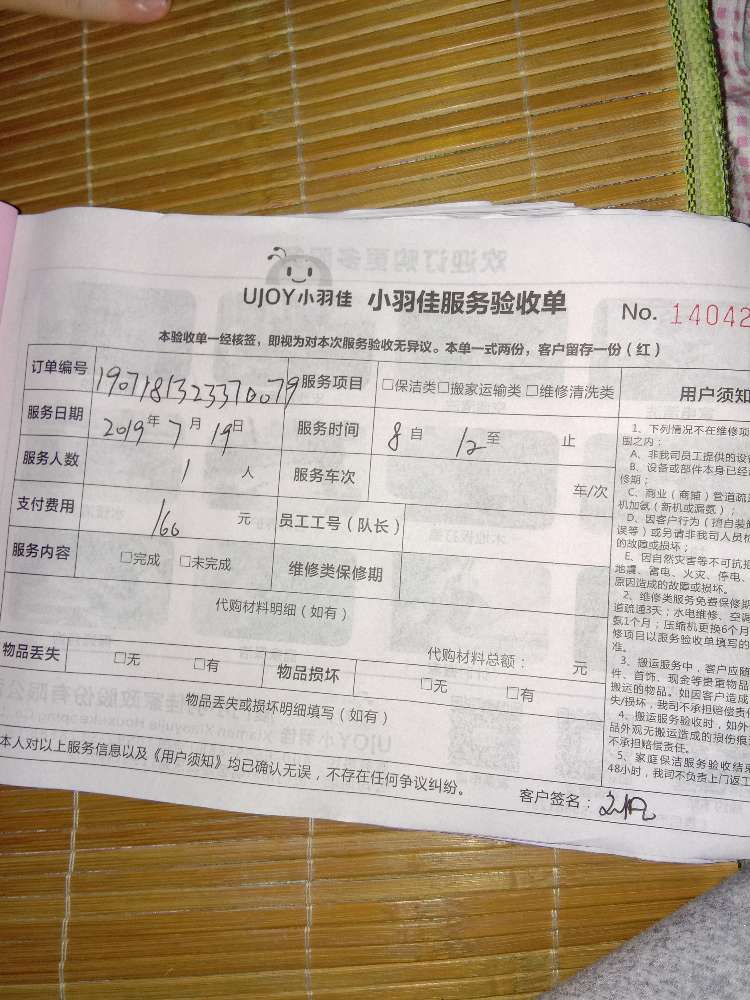 UJOY小羽佳 小羽佳服务验收单 No. 14042
本验收单一经核签，即视为对本次服务验收无异议。本单一式两份，客户留存一份（红）
订单编号 服务项目 □保洁类□搬家运输类 □维修清洗类
服务日期 2019年 7月 19日 服务时间 8自 12至 止
服务人数 1 人 服务车次 车/次
支付费用 160 元 员工工号（队长）
服务内容 □完成 □未完成 维修类保修期
代购材料明细（如有）
代购材料总额： 元
物品丢失 □无 □有 物品损坏 □无 □有
物品丢失或损坏明细填写（如有）
本人对以上服务信息以及《用户须知》均已确认无误，不存在任何争议纠纷。
客户签名：
用户须知
1、下列情况不在维修项
围之内：
A、非我司员工提供的设
B、设备或部件本身已经
修期；
C、商业（商铺）管道疏
机加氨（新机或漏氨）；
D、因客户行为（擅自装
误等）或另请非我司人员检
的故障或损坏；
E、因自然灾害等不可抗
地震、雷电、火灾、停电、
原因造成的故障或损坏。
2、维修类服务免费保修期
道疏通3天；水电维修、空调
氨1个月；压缩机更换6个月
修项目以服务验收单填写的
准。
3、搬运服务中，客户应随
件、首饰、现金等贵重物品
搬运的物品。如因客户造成
失/损坏，我司不承担赔偿责
4、搬运服务验收时，如外
品外观无搬运造成的损伤痕
不承担赔偿责任。
5、家庭保洁服务验收结束
48小时，我司不负责上门返工